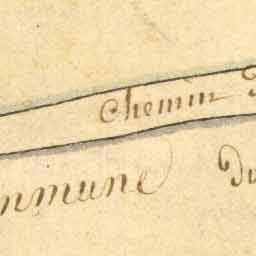 Chemin
ommune du